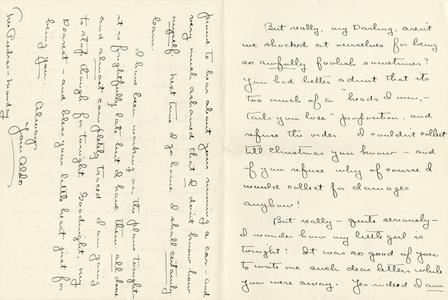 But really, my Darling, aren't
we shocked at ourselves for being
so awfully foolish sometimes?
You had better admit that it's
too much of a "heads I win, -
tails you lose" proposition, and
refuse the order. I couldn't collect
till Christmas you know - and
if you refuse why of course I
would collect for damages
anyhow!
But really - quite seriously -
I wonder how my little girl is
tonight? It was so good of you
to write me such dear letters while
you were away. Yes indeed I am
proud to hear about your running a car - and
very much ashamed that I don't know how
myself. Next time I go home I shall certainly
learn.
I have been working on the plans tonight -
it is frightfully late but I have them all done
and almost completely traced. I am going
to stop though for tonight. Goodnight, my
Dearest - and bless your little heart just for
being you.
Always
Your Aldo
Monday